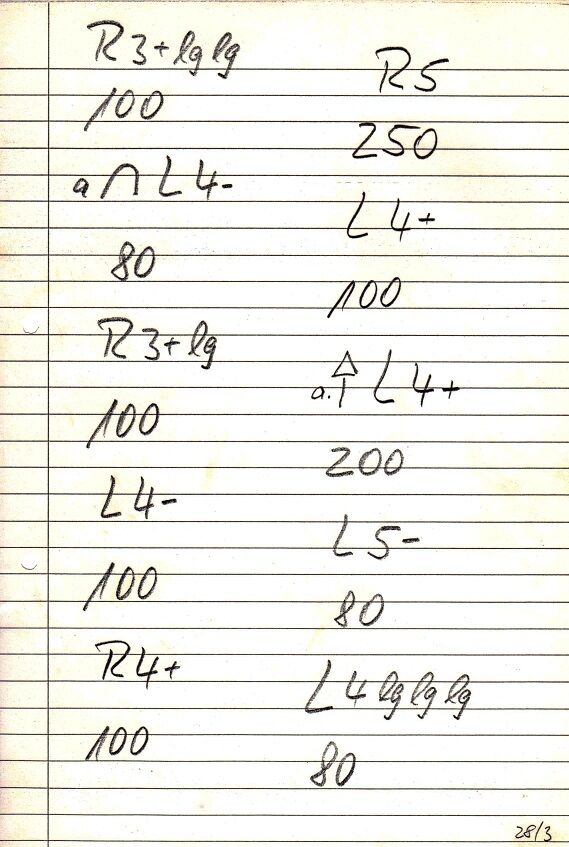 R3+lglg
100
a ∩ L4-
80
R3+lg
100
L4-
100
R4+
100
R5
250
L4+
100
a. L4+
200
L5-
80
L4 lg lg lg
80
28/3